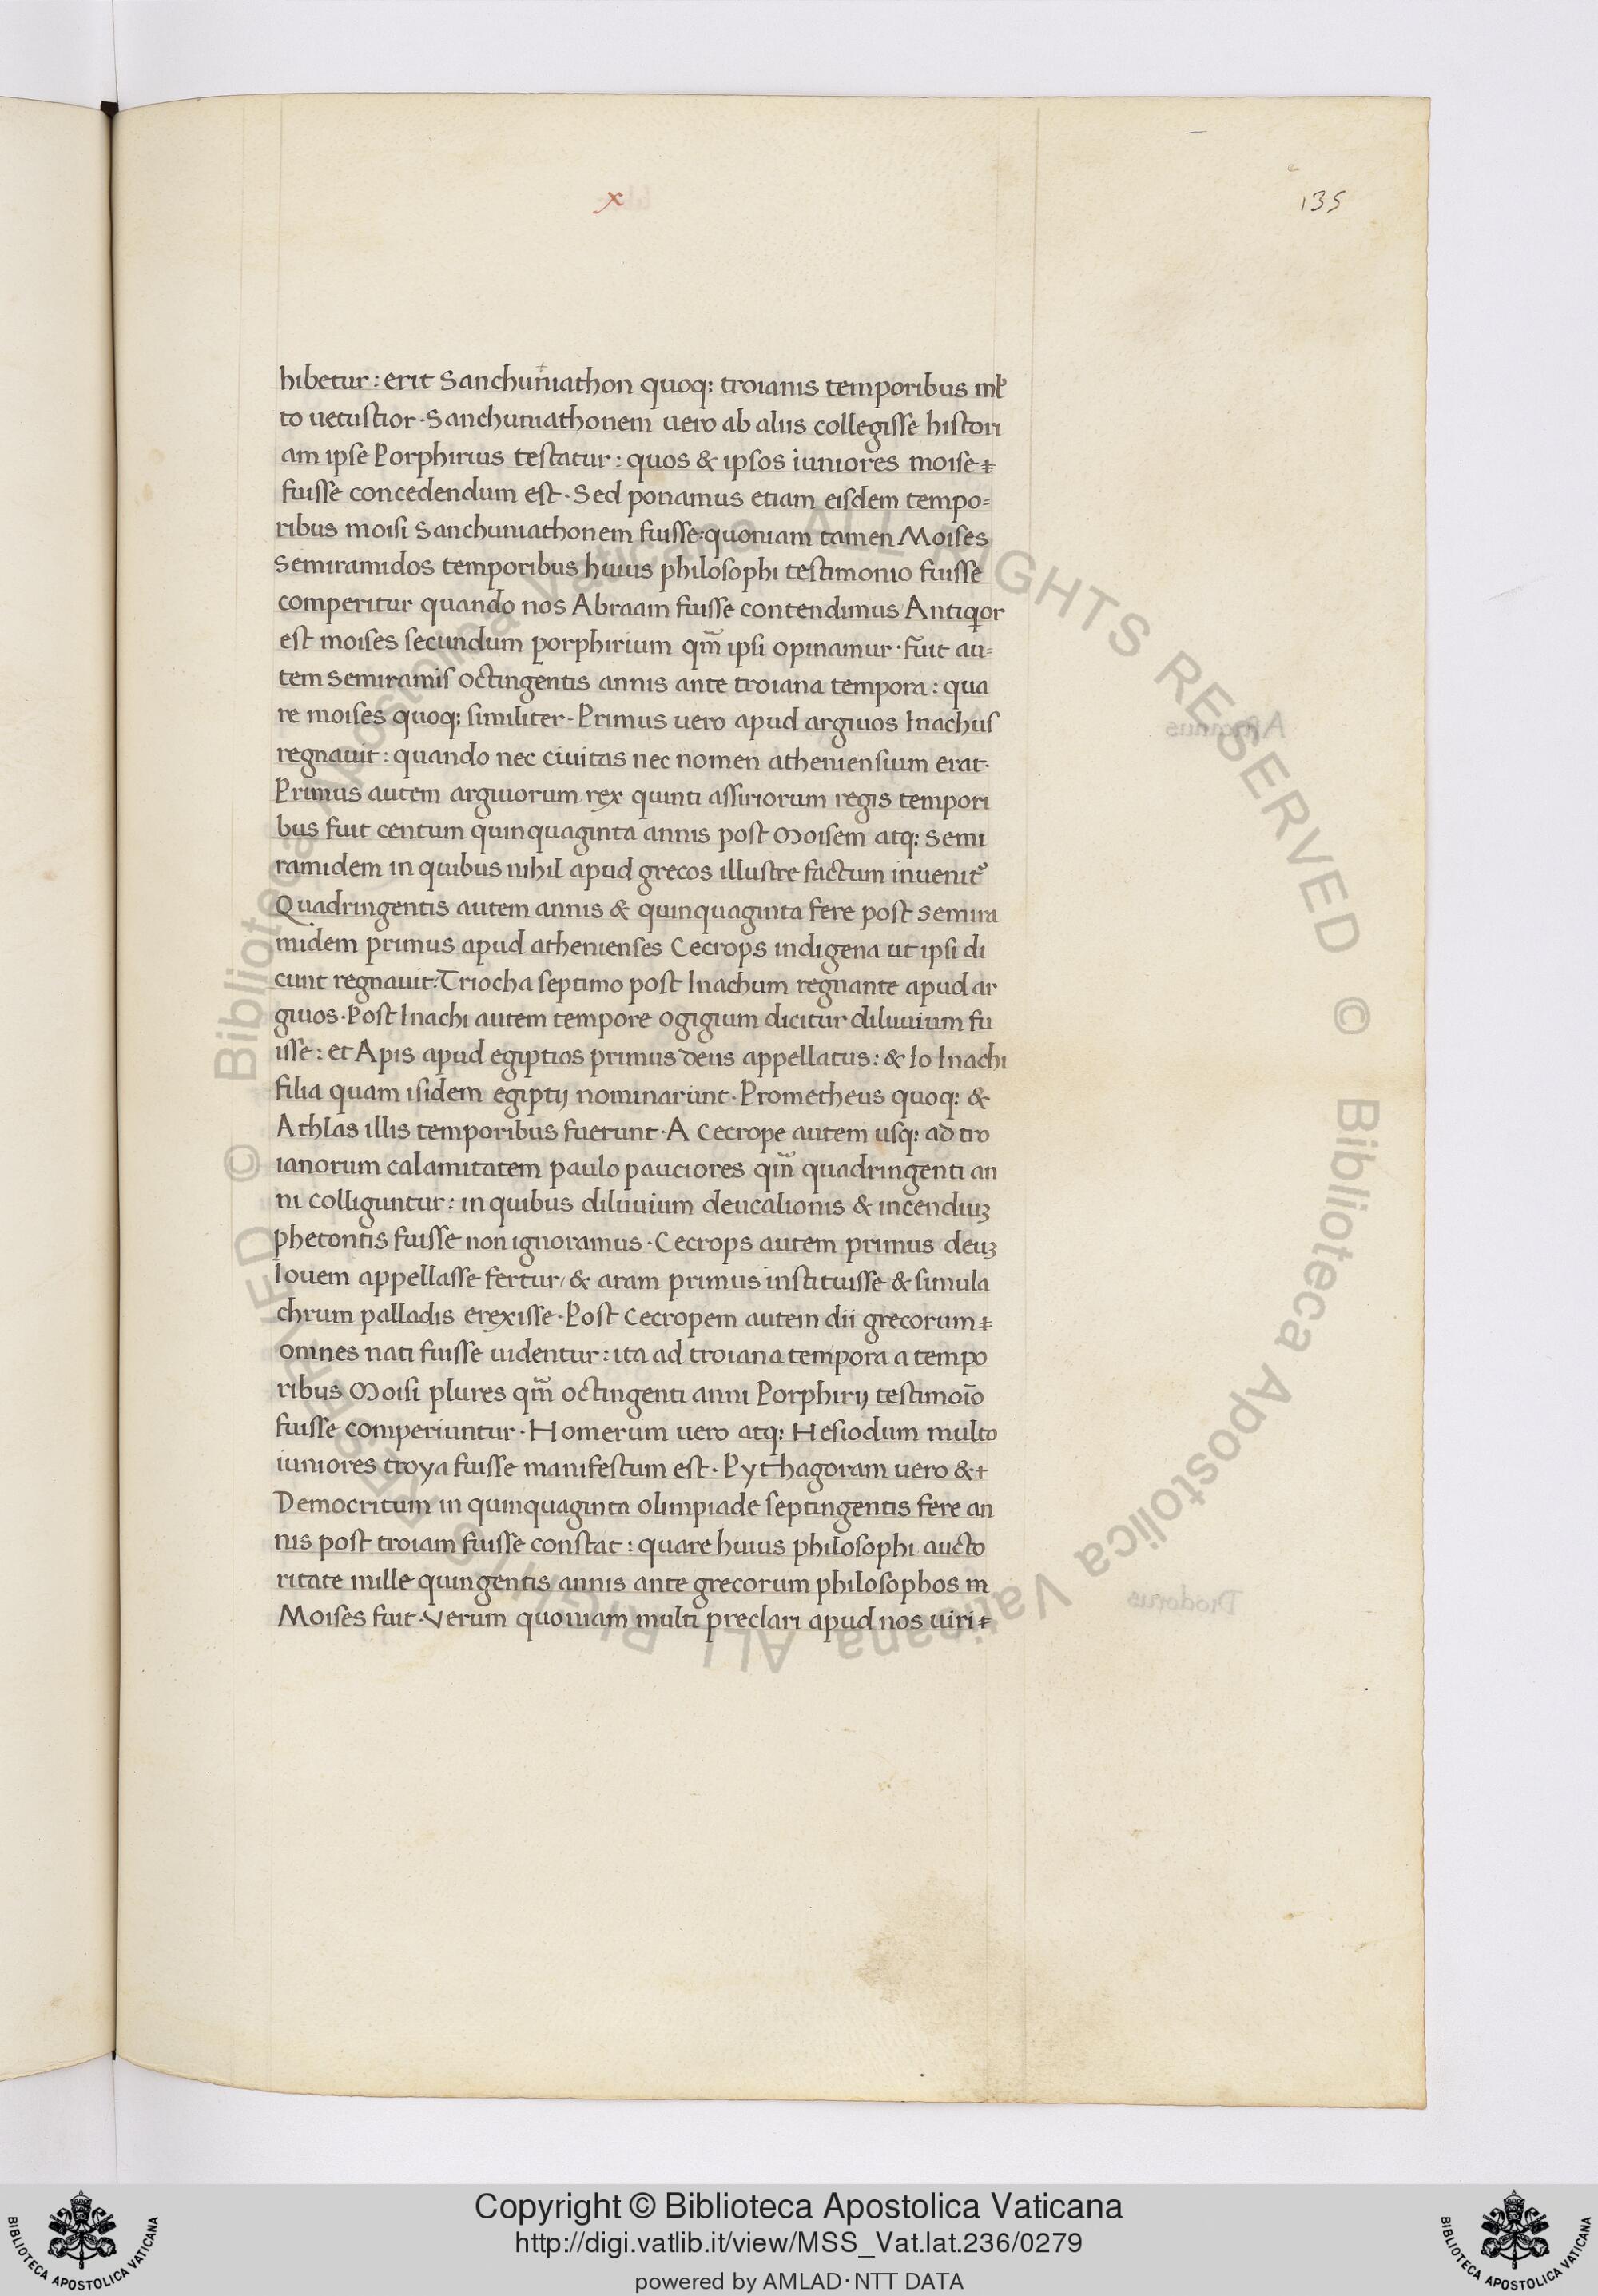 x
135
hibetur: erit Sanchuniathon quoq; troianis temporibus ml̃
to uetustior · Sanchuniathonem uero ab aliis collegisse histori
am ipse Porphirius testatur: quos & ipsos iuniores moise
fuisse concedendum est · Sed ponamus etiam eisdem tempo=
ribus moisi Sanchuniathonem fuisse: quoniam tamen Moises
Semiramidos temporibus huius philosophi testimonio fuisse
comperitur quando nos Abraam fuisse contendimus Antiqor
est moises secundum porphirium qm̃ ipsi opinamur · fuit au=
tem Semiramis octingentis annis ante troiana tempora: qua
re moises quoq; similiter · Primus uero apud argiuos Inachus
regnauit: quando nec ciuitas nec nomen atheniensium erat ·
Primus autem argiuorum rex quinti assiriorum regis tempori
bus fuit centum quinquaginta annis post Moisem atq; Semi
ramidem in quibus nihil apud grecos illustre factum inuenit᷒
Quadringentis autem annis & quinquaginta fere post Semira
midem primus apud athenienses Cecrops indigena ut ipsi di
cunt regnauit: Triocha septimo post Inachum regnante apud ar
giuos · Post Inachi autem tempore ogigium dicitur diluuium fu
isse: et Apis apud egiptios primus deus appellatus: & Io Inachi
filia quam isidem egiptij nominarunt · Prometheus quoq; &
Athlas illis temporibus fuerunt · A Cecrope autem usq; ad tro
ianorum calamitatem paulo pauciores qm̃ quadringenti an
ni colliguntur: in quibus diluuium deucalionis & incendiuꝫ
phetontis fuisse non ignoramus · Cecrops autem primus deuꝫ
Iouem appellasse fertur/ & aram primus instituisse & simula
chrum palladis erexisse · Post Cecropem autem dii grecorum
omnes nati fuisse uidentur: ita ad troiana tempora a tempo
ribus Moisi plures qm̃ octingenti anni Porphirij testimoĩo
fuisse comperiuntur · Homerum uero atq; Hesiodum multo
iuniores troya fuisse manifestum est · Pythagoram uero &
Democritum in quinquaginta olimpiade septingentis fere an
nis post troiam fuisse constat: quare huius philosophi aucto
ritate mille quingentis annis ante grecorum philosophos
Moises fuit · Verum quoniam multi preclari apud nos uiri
Copyright © Biblioteca Apostolica Vaticana
http://digi.vatlib.it/view/MSS_Vat.lat.236/0279
powered by AMLAD·NTT DATA
BIBLIOTECA APOSTOLICA VATICANA
BIBLIOTECA APOSTOLICA VATICANA
© Biblioteca Apostolica Vaticana ALL RIGHTS RESERVED
© Biblioteca Apostolica Vaticana ALL RIGHTS RESERVED